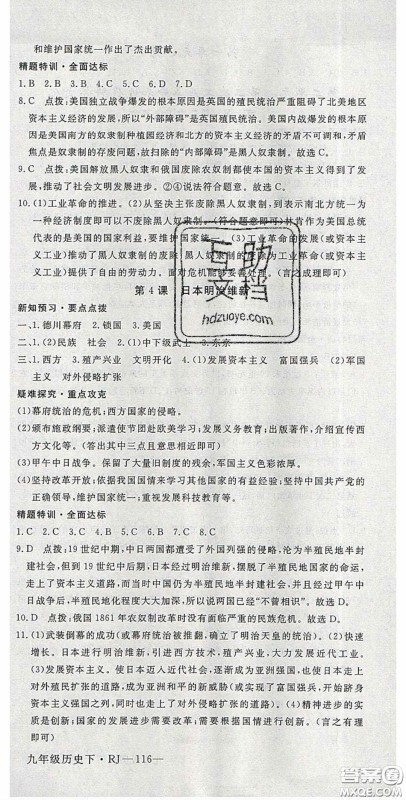 和维护国家统一作出了杰出贡献。
精题特训·全面达标
1. B 2. B 3. C 4. B 5. C 6. D 7. D
8. C 点拨:美国独立战争爆发的根本原因是英国的殖民统治严重阻碍了北美地区
资本主义经济的发展,所以“外部障碍”是指英国的殖民统治;美国内战爆发的根
本原因是美国南方的奴隶制种植园经济和北方的资本主义经济的矛盾不可调和,矛盾
焦点是奴隶制的存废问题,故扫除的“内部障碍”是黑人奴隶制。故选C。
9. C 点拨:美国解放黑人奴隶和俄国废除农奴制都使本国的资本主义得到了发
展,推动了社会文明发展进步。②④说法符合题意。故选C。
10. (1)工业革命的推进。(2)从坚决主张废除黑人奴隶制,到表示南北方统一为
一种经济制度即可以不废除黑人奴隶制。(符合题意即可)林肯作为美国总统
代表的是美国的国家利益,要维护国家统一。(3)工业革命的发展(或资本主
义工业)推动了黑人奴隶制的废除。(或废除黑人奴隶制为工业革命(或资本主
义工业)提供了自由的劳动力。面对危机能够妥协变通。(言之成理即可)
第4课 日本明治维新
新知预习·要点点拨
一、1. 德川幕府 2. 锁国 3. 美国
二、1. (2)民族 社会 2. (1)中下级武士 3. 东京
三、1. 西方 3. 殖产兴业 文明开化 4. (1)发展资本主义 富国强兵 (2)军国
主义 对外侵略扩张
疑难探究·重点攻克
(1)幕府统治的危机;西方国家的侵略。
(2)颁布施政纲要;派遣使节团赴欧美学习;发展义务教育;出版著作,介绍宣传西
方文化等。(答出其中三点且意思相近即可)
(3)甲午中日战争。保留了大量旧制度的残余,军国主义色彩浓厚。
(4)坚持改革开放;依据我国国情来学习其他国家的有益经验;坚持中国共产党的
正确领导,维护国家统一;重视发展科技教育等。
精题特训·全面达标
1. C 2. D 3. C 4. B 5. B 6. C 7. C 8. C
9. D 点拨:19世纪中期,中日两国都遭受了外国列强的侵略,沦为半殖民地半封
建社会,但到19世纪中后期,日本经过明治维新,摆脱了半殖民地国家的命运,
走上了资本主义道路,而当时中国仍为半殖民地半封建社会,并经过甲午中
日战争,半殖民地化程度大大加深,所以说两国已经“不曾相识”。故选D。
10. D 点拨:俄国1861年农奴制改革时没有面临严重的民族危机。故选D。
11. (1)武装倒幕的成功(或幕府统治被推翻,或确立了明治天皇的统治)。(2)快速
增长。日本进行明治维新,引进西方技术,殖产兴业,发展资本主义。
(3)发展资本主义。使日本迈入近代社会,逐渐成为亚洲强国,也使日本走上
对外侵略扩张的道路,成为亚洲和平的新威胁(或实现了富国强兵,开始跻身
资本主义强国的行列,走上了对外侵略扩张的道路)。(4)精神进步的实质
在于创新;要敢于改革创新,要根据国情进行改革创新等。(言之有理
即可)
九年级历史下·RJ—116—
互助
文档
hdzuoye.com
答案圈
MXQE.COM